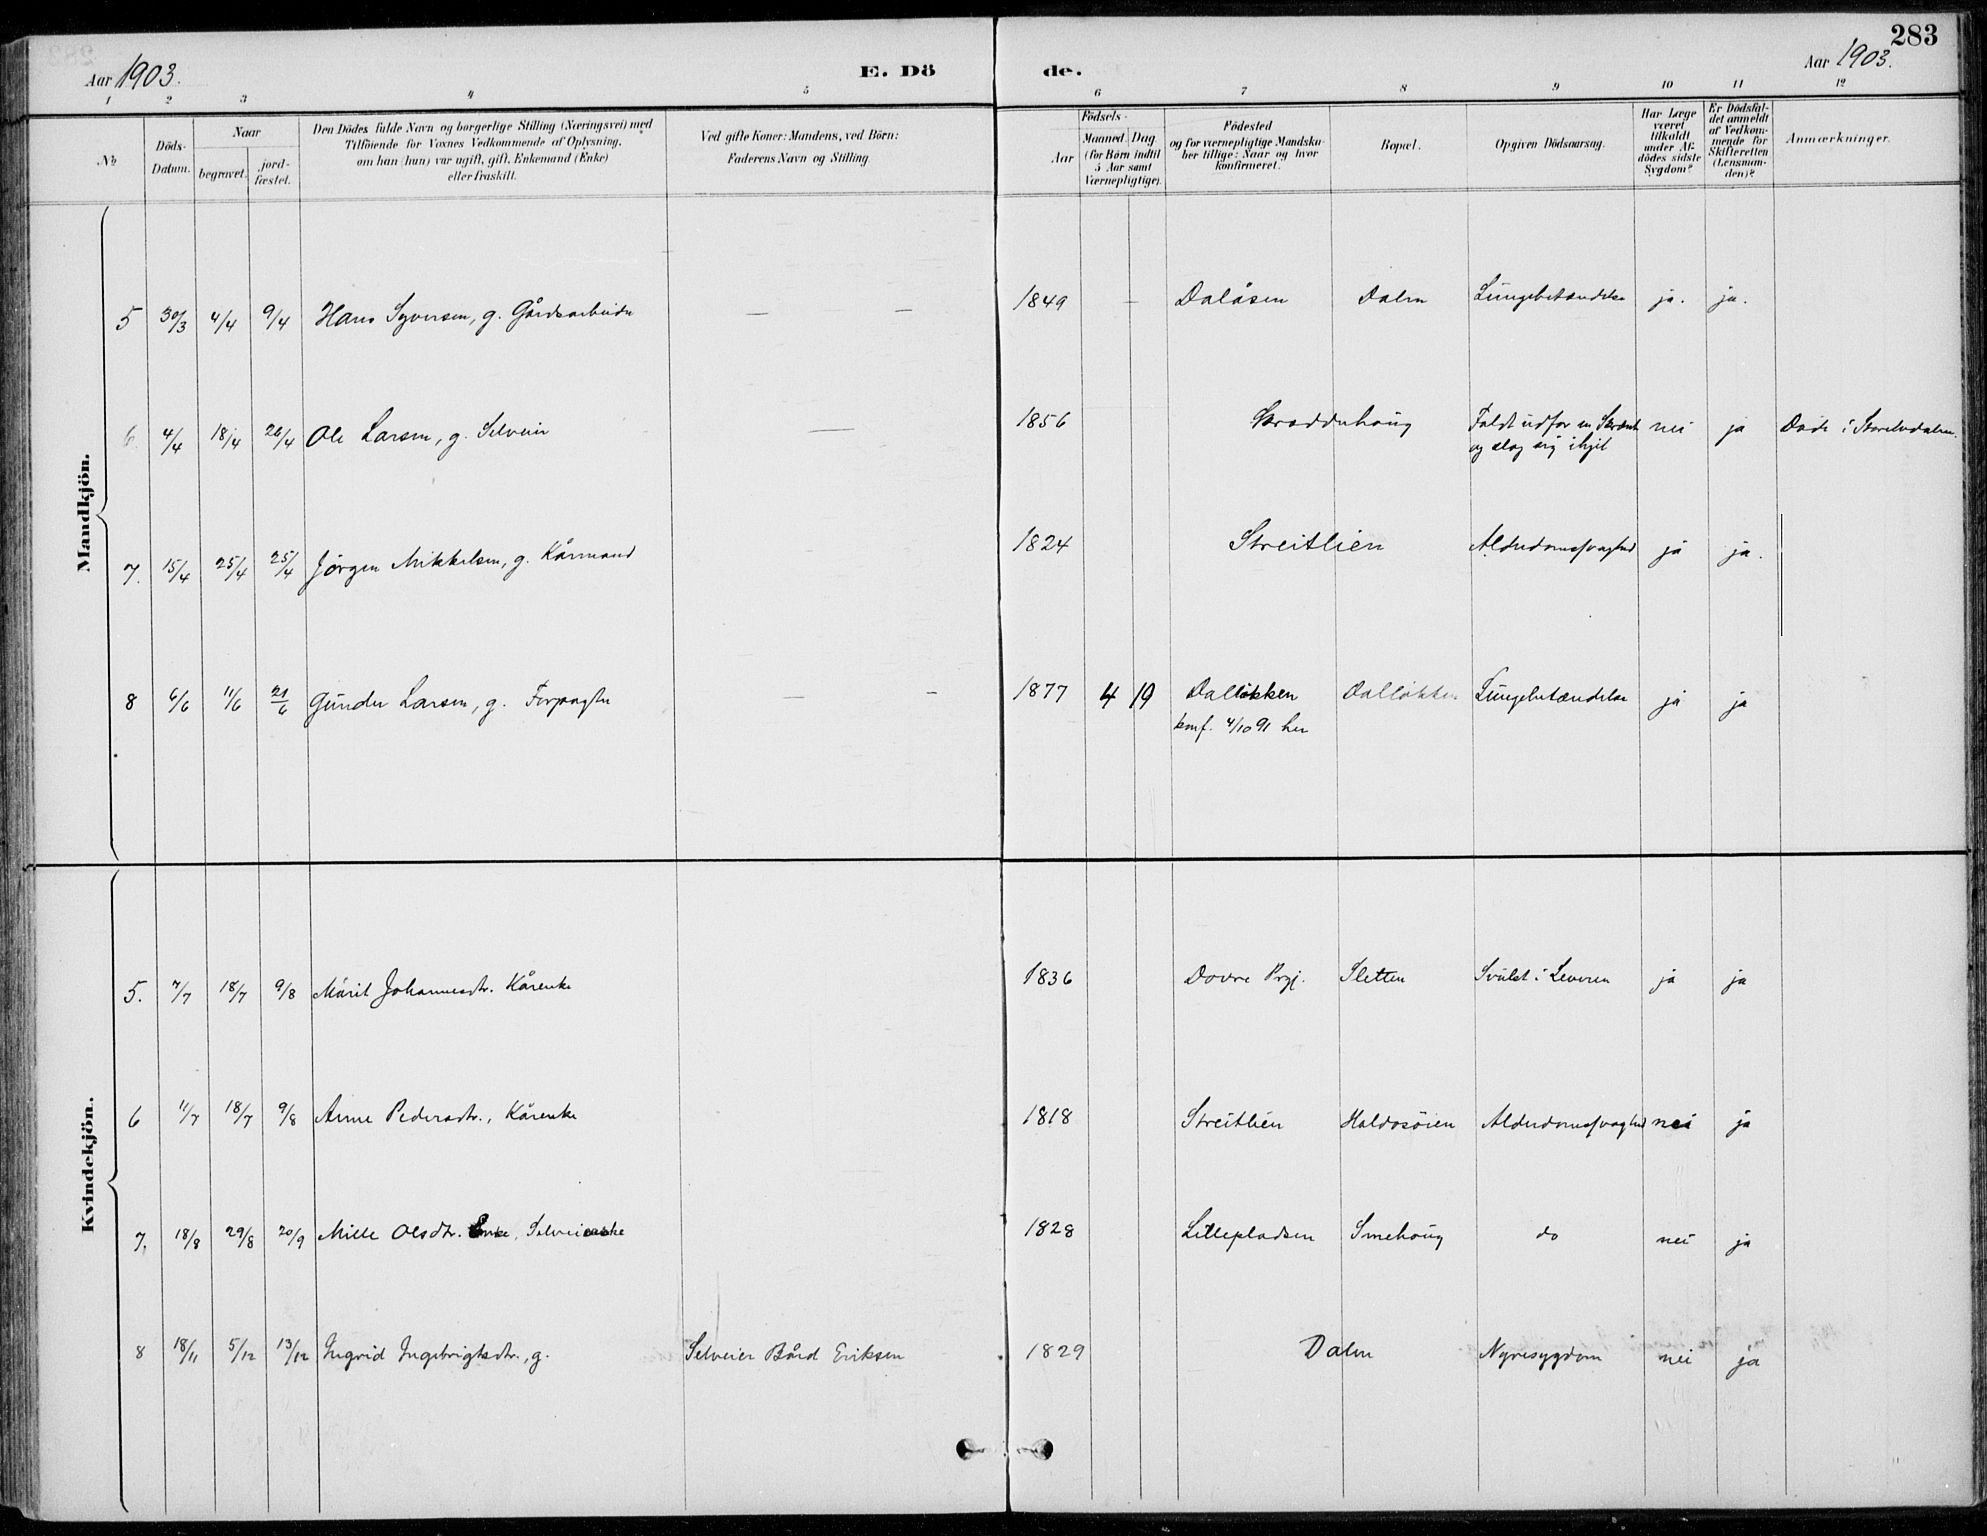 283
Aar 1903.
E. Dö
de.
Aar 1903.
1 2 3 4 5 6 7 8 9 10 11 12
№
Döds-
Datum.
Naar
begravet.
jord-
fæstet.
Den Dödes fulde Navn og borgerlige Stilling (Næringsvei) med
Tilföiende for Voxnes Vedkommende af Oplysning,
om han (hun) var ugift, gift, Enkemand (Enke)
eller fraskilt.
Ved gifte Koner: Mandens, ved Börn:
Faderens Navn og Stilling.
Födsels-
Aar
Maaned. Dag
(for Börn indtil
5 Aar samt
Værnepligtige).
Födested
og for værnepligtige Mandsku-
ber tillige: Naar og hvor
konfirmeret.
Bopæl.
Opgiven Dödsaarsag.
Har Læge
været
tilkaldt
under Af-
dödes sidste
Sygdom?
Er Dödsfal-
det anmeldt
af Vedkom-
mende for
Skifteretten
(Lensman-
den)?
Anmærkninger.
Mandkjön.
5 30/3 4/4 9/4 Hans Syversen, g. Gårdsarbeider — — 1849 — Dalåsen Dalen Lungebetændelse ja. ja.
6. 4/4 18/4 26/4 Ole Larsen, g. Selveier — — 1856 Skradduhoug Faldt udfor en Skrænt nei ja Döde i
og slog sig ihjel
7. 15/4 25/4 25/4 Jörgen Mikkelsen, g. Kårmand 1824 Streitlien Alderdomssvaghed ja ja.
8 6/6 11/6 21/6 Gunder Larsen, g. Forpagter — — 1877 4 19 Dallökken Dallökken Lungebetændelse ja ja
konf. 4/10 91 her
Kvindekjön.
5. 7/7 18/7 9/8 Márit Johannesdtr. Kårenke 1836 Dovre Prgj. Sletten Svulst i Leveren ja ja
6 11/7 18/7 9/8 Anne Pedersdtr., Kårenke 1818 Streitlien Haldosöien Alderdomssvaghed nei ja
7. 18/8 29/8 20/9 Mille Olsdtr. Enke, Selveierenke 1828 Lillepladsen Smehoug do nei ja
8 18/11 5/12 13/12 Ingrid Ingebrigtsdtr., g. Selveier Bård Eriksen 1829 Dalen Nyresygdom nei ja